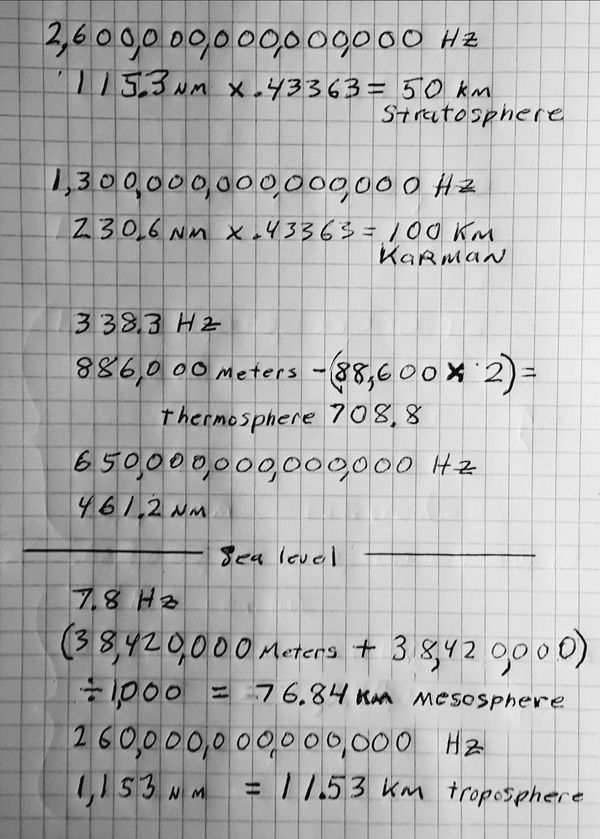 2,600,000,000,000,000 Hz
115.3 NM x .43363 = 50 KM
Stratosphere
1,300,000,000,000,000 Hz
230.6 NM x .43363 = 100 KM
KARMAN
338.3 Hz
886,000 meters - (88,600 x 2) =
thermosphere 708.8
650,000,000,000,000 Hz
461.2 NM
Sea level
7.8 Hz
(38,420,000 Meters + 38,420,000)
÷ 1,000 = 76.84 KM mesosphere
260,000,000,000,000 Hz
1,153 NM = 11.53 KM troposphere